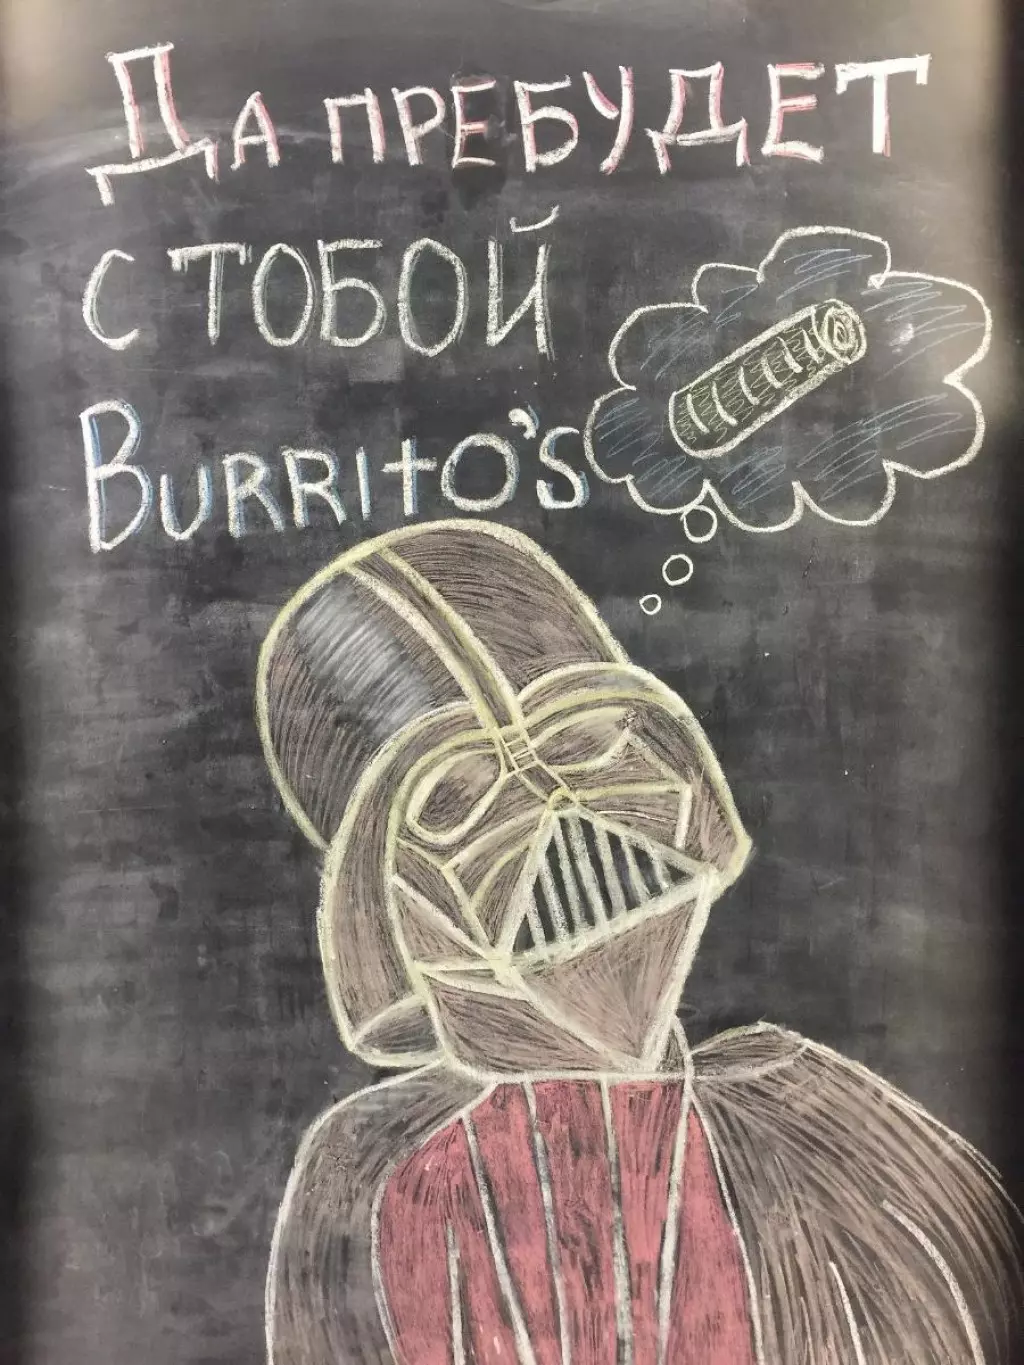 Да пребудет
с тобой
Burrito's